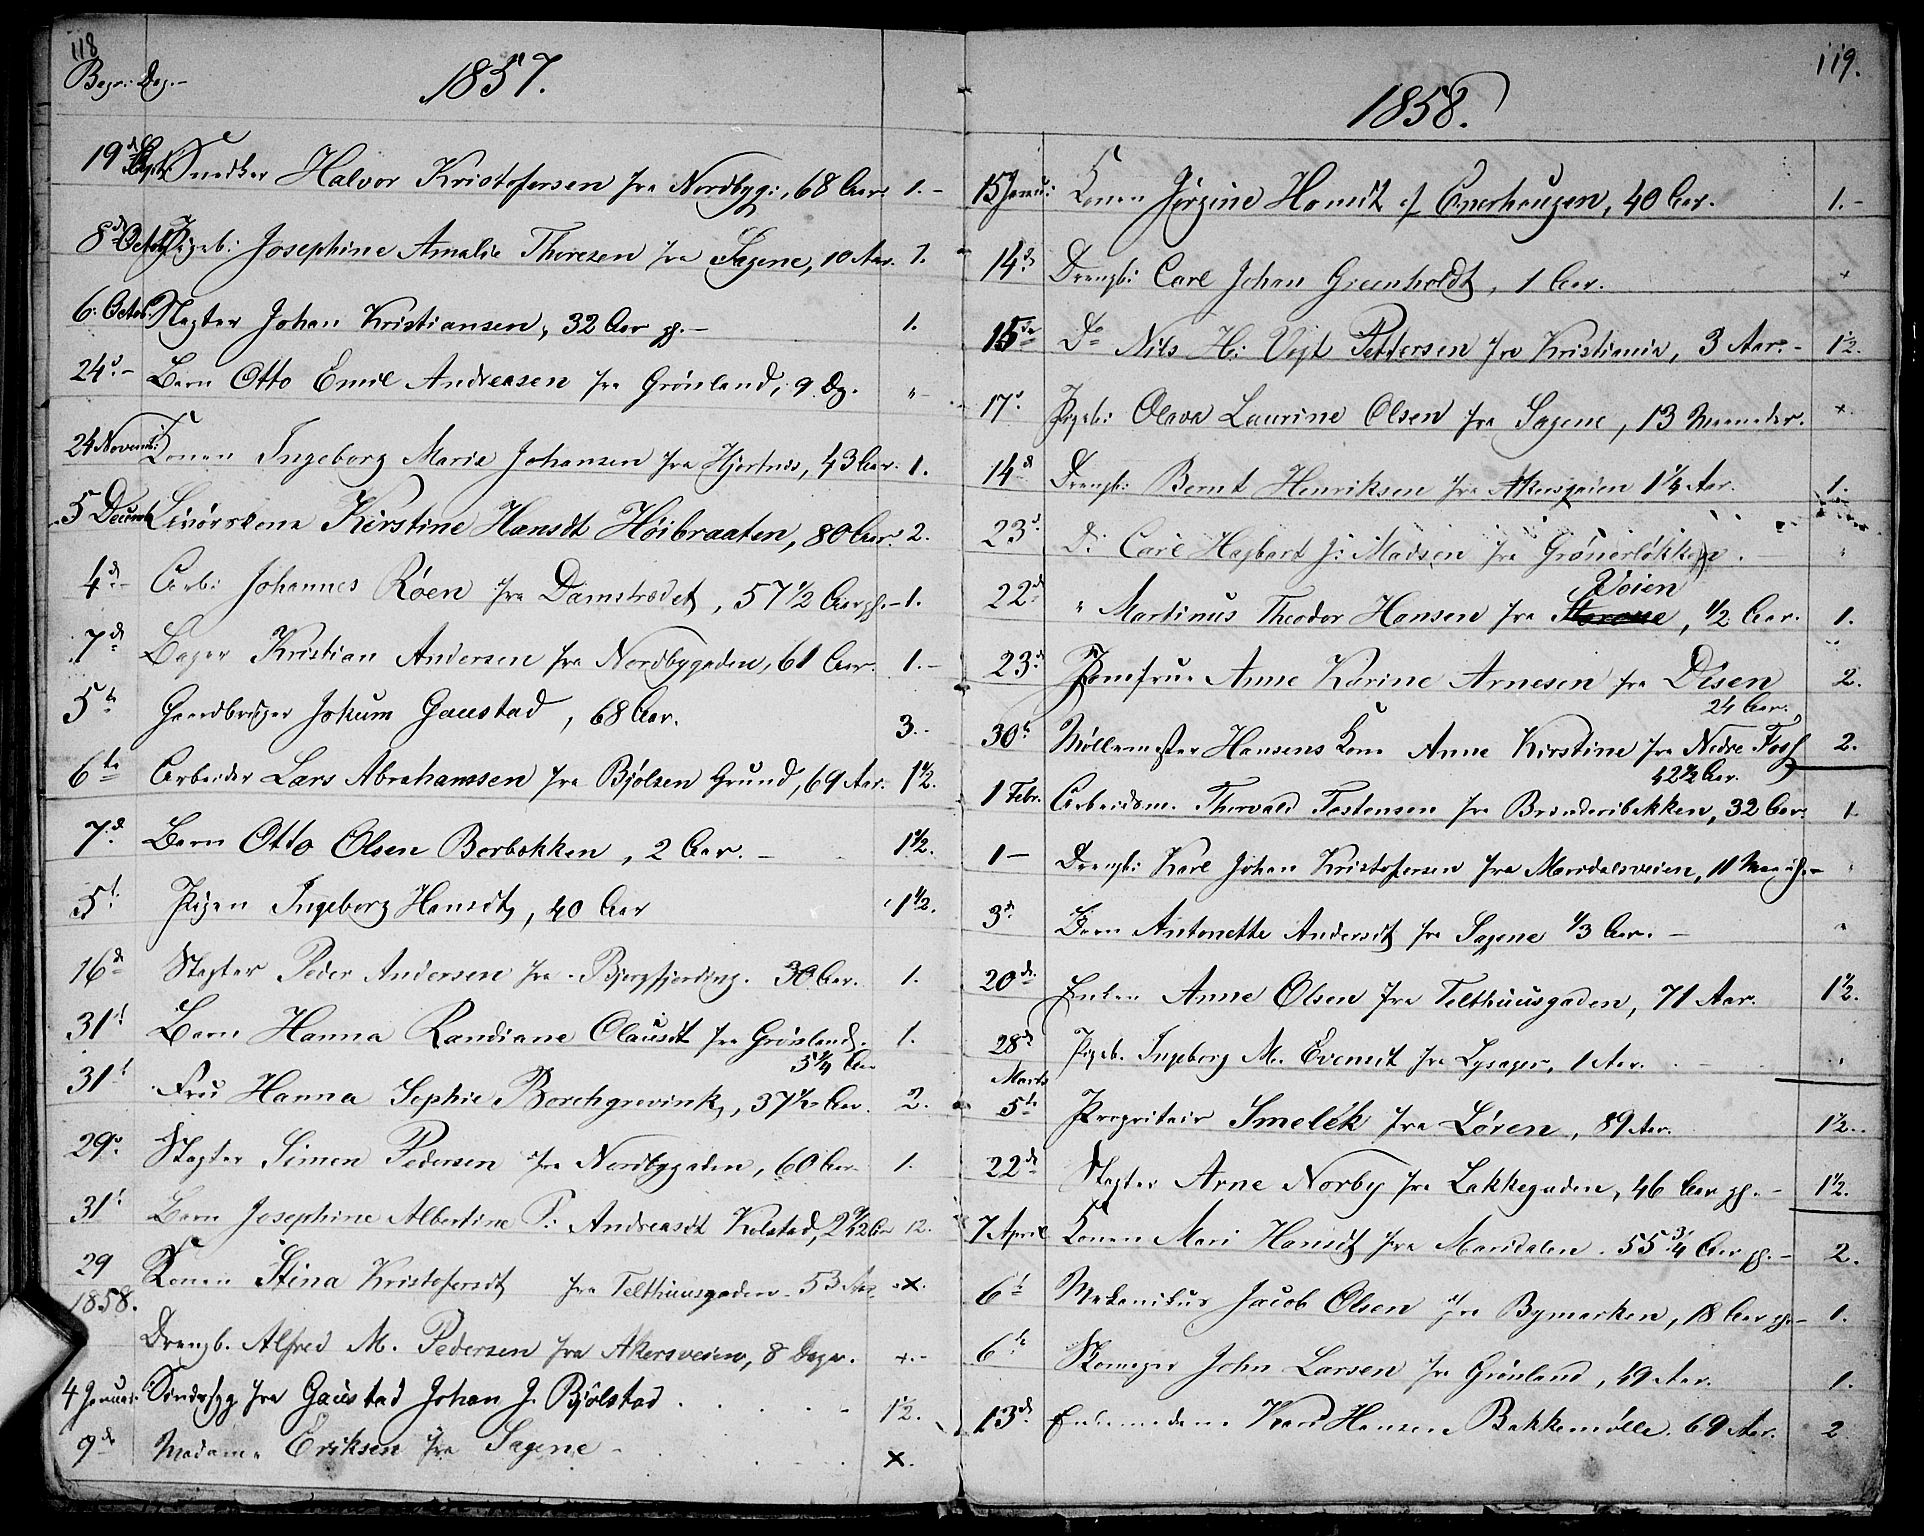 118
Begr: Dag.-
1857.
19d Septr Snedker Halvor Kristofersen fra Nordbyg:, 68 Aar. 1.-
8d Octob Pigeb: Josephine Amalie Thoresen fra Sagene, 10 Aar. 1.
6. Octob. Slagter Johan Kristiansen, 32 Aar g.- 1.
24d.- Barn Otto Emil Andreasen fra Grønland, 9 Dg. "
24 Novemb: Konen Ingeborg Maria Johansen fra Hjortnes, 43 Aar. 1.
5 Decemb Kirstine Hansdt Høibraaten, 80 Aar. 2.
4d.- Arb: Johannes Røen fra Damstrædet, 57 1/2 Aar g.- 1.
7d Bager Kristian Andersen fra Nordbygaden, 61 Aar. 1.-
5te Gaardbruger Jokum Gaustad, 68 Aar. 3.-
6te Arbeider Lars Abrahamsen fra Bjølsen Grund, 69 Aar. 1 1/2.
7d. Barn Otto Olsen Berbakken, 2 Aar. - 1 1/2.
5t. Pigen Ingeborg Hansdt, 40 Aar 1 1/2.
16d Slagter Peder Andersen fra 30 Aar. 1.
31t Barn Hanna Randiane Olausdt fra Grønland. 1.
5 3/4 Aar
31t Fru Hanna Sophie Borchgrevink, 37 1/2 Aar. 2.
29d. Slagter Simen Pedersen fra Nordbygaden, 60 Aar. 1.
31t Barn Josephine Albertine P: Andreasdt Kolstad, 2 1/2 Aar 1/2.
29 Konen Stina Kristofersdt fra Telthuusgaden - 53 Aar x.
1858.
Drengb. Alfred M. Pedersen fra Akersveien, 8 Dage. +.-
4 Januar. Sindssyg fra Gaustad Johan J. Bjølstad . . . . - 1/2.
9de Madam Eriksen fra Sagene - x.
119.
1858.
15 Janu: Konen Jørgine Hansdt af Enerhaugen, 40 Aar. 1.-
14d Drengb: Carl Johan Gruenholdt, 1 Aar. +
15de Do Nils H: Vogt Pettersen fra Kristiania, 3 Aar.- 1/2.
17d. Pigeb: Olava Laurine Olsen fra Sagene, 13 Maaneder. +.
14d Drengb: Bernt Henriksen fra Akersgaden 1 1/4 Aar. 1.
23d. D: Carl Hagbart J: Madsen fra Grønerløkken. - "
22d " Martinus Theodor Hansen fra Voien, 1/2 Aar. 1.
23d Jomfrue Anne Karine Arnesen fra Disen 2.
24 Aar.
30te Møllemester Hansens Kone Anne Kirstine fra Nedre Foss 2.
42 1/2 Aar.
1 Febr. Arbeidsm. Thorvald Tostensen fra 32 Aar. 1.
1 - Drengb: Karl Johan Kristofersen fra Maridalsveien, 11 Maan g.- "
3d. Barn Antonette Andersdt fra Sagene 1/3 Aar. - "
20de. Enken Anne Olsen fra Telthuusgaden, 71 Aar. 1 1/2.
28d Pigeb. Ingeborg M. Evensdt fra Lysager, 1 Aar. - "
Marts
5te Propritair Smelék fra Løren, 89 Aar. 1/2.
22de Slagter Arne Norby fra Lakkegaden, 46 Aar g. - 1 1/2.
7 April Konen Mari Hansdt fra Maridalen. 55 3/4 Aar g.- 2.
6t Mekanikus Jacob Olsen fra Bymarken, 18 Aar g.- 1.
6te Skomager John Larsen fra Grønland, 49 Aar. 1.
13de. Enkemadam Kari Hansen Bakkemølle. 69 Aar. 2